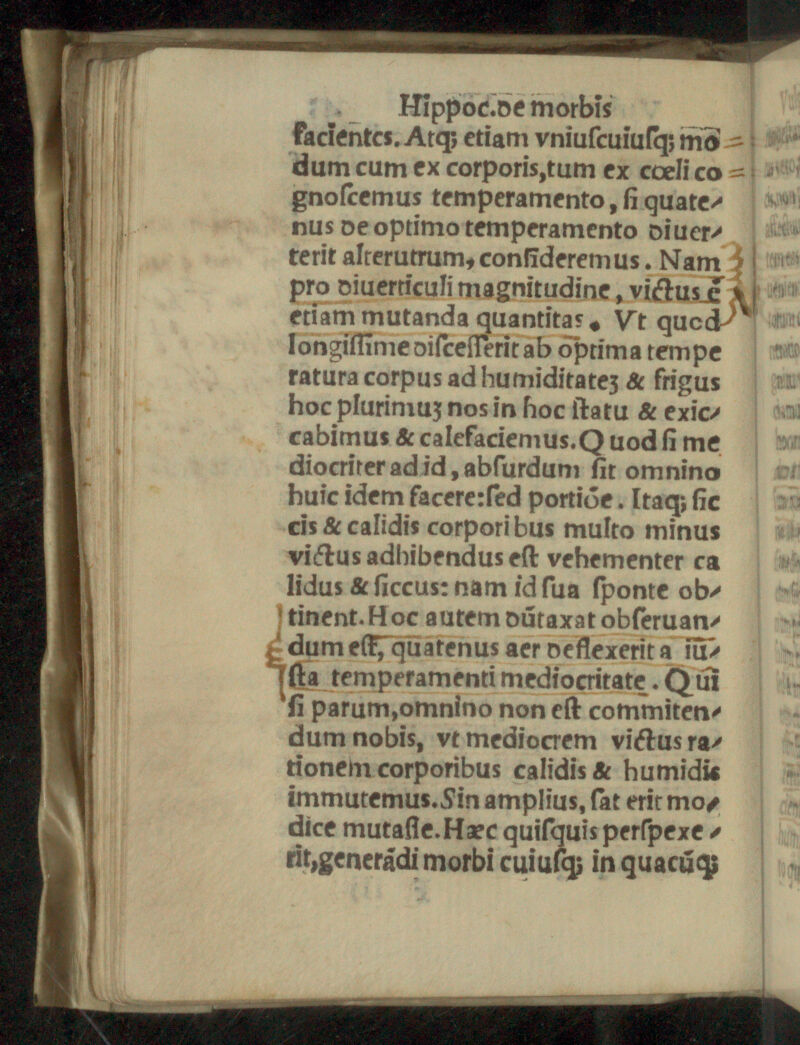 Hippoc.de morbis
facientes. Atq; etiam vniuſcuiuſq; mo=
dum cum ex corporis,tum ex cœli co=
gnoſcemus temperamento, ſi quate-
nus de optimo temperamento diuer-
terit alterutrum, conſideremus. Nam
pro diuerticuli magnitudine, victus ē
etiam mutanda quantitas. Vt quod
longiſſime diſceſſerit ab optima tempe
ratura corpus ad humiditateʒ & frigus
hoc plurimuʒ nos in hoc ſtatu & exic-
cabimus & calefaciemus. Quod ſi me
diocriter ad id, abſurdum ſit omnino
huic idem facere:ſed portiōe. Itaq; ſic
cis & calidis corporibus multo minus
victus adhibendus eſt vehementer ca
lidus & ſiccus: nam id ſua ſponte ob-
tinent. Hoc autem dūtaxat obſeruan-
dum eſt, quatenus aer deflexerit a iu-
ſta temperamenti mediocritate. Qui
ſi parum,omnino non eſt commiten-
dum nobis, vt mediocrem victus ra-
tionem corporibus calidis & humidis
immutemus. Sin amplius, ſat erit mo-
dice mutaſſe. Hæc quiſquis perſpexe-
rit,generādi morbi cuiuſq; in quacūq;